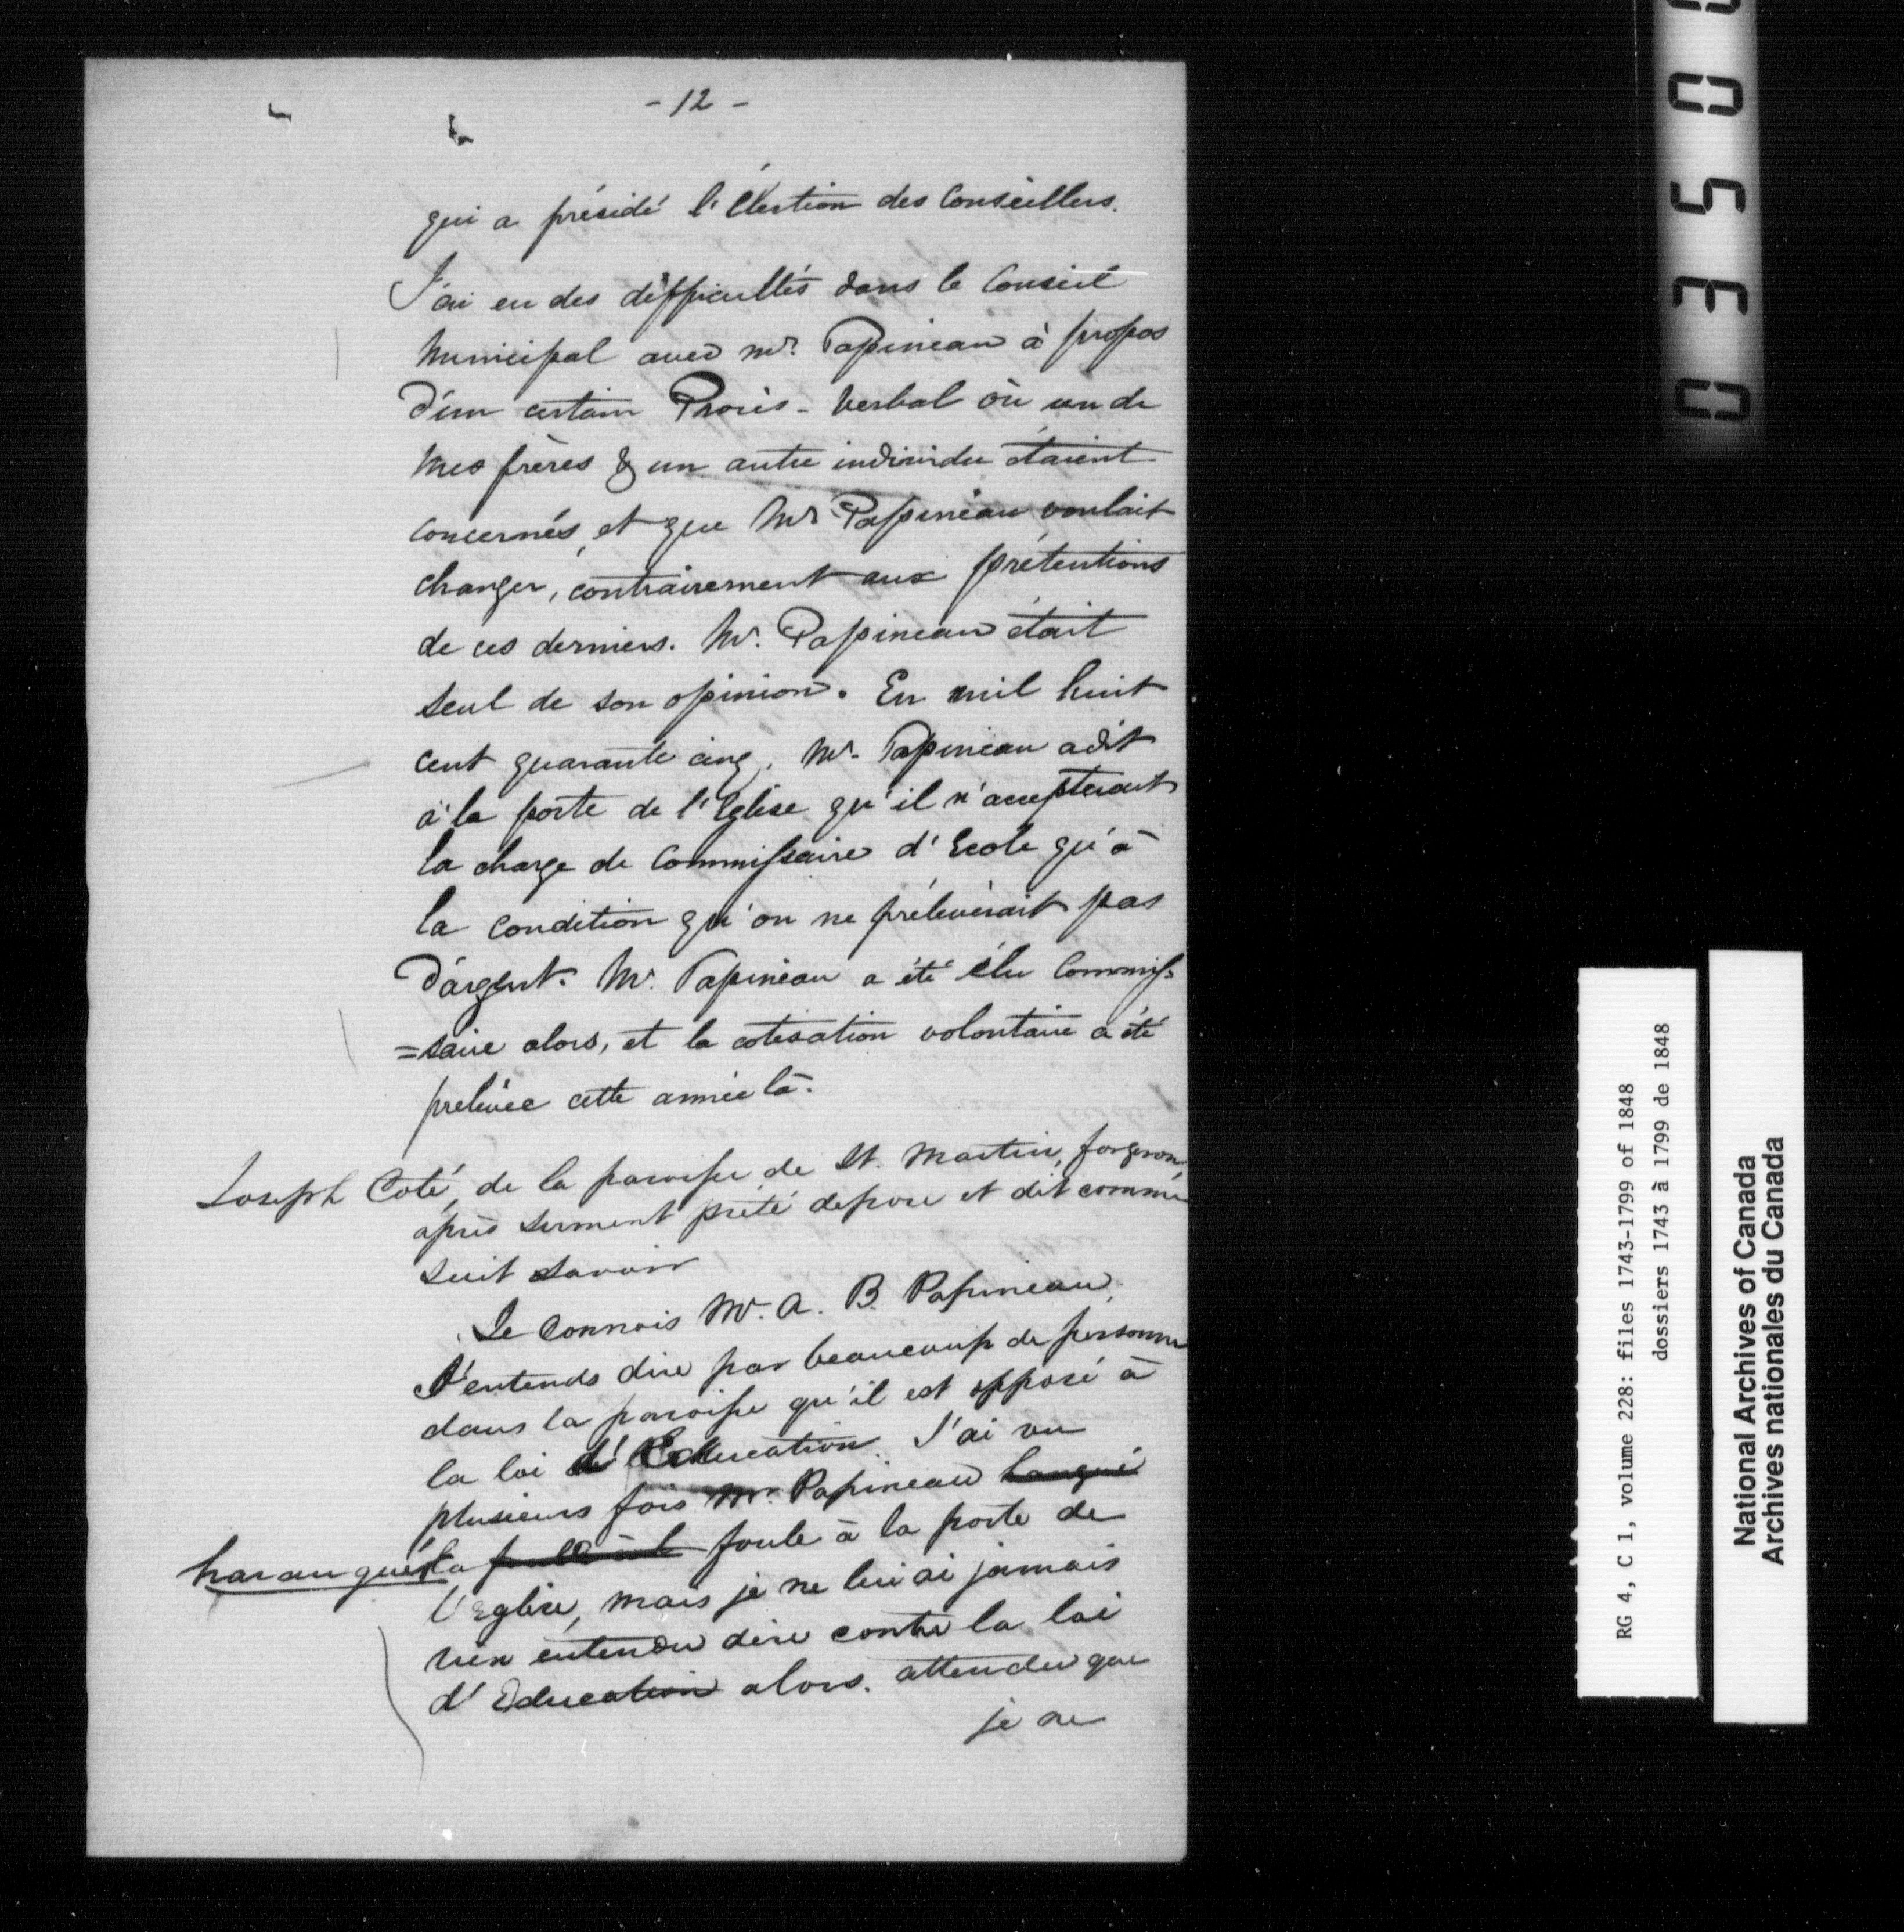 - 12 -
qui a présidé l'Election des Conseillers.
J'ai eu des difficultés dans le Conseil
Municipal avec Mr. Papineau à propos
d'un certain Procès-Verbal où un de
mes frères & un autre individu étaient
concernés, et que Mr Papineau voulait
changer, contrairement aux prétentions
de ces derniers. Mr. Papineau était
seul de son opinion. En mil huit
cent quarante cinq, Mr. Papineau a dit
à la porte de l'Eglise qu'il n'accepterait
la charge de Commissaire d'Ecole qu'à
la condition qu'on ne prélèverait pas
d'argent. Mr. Papineau a été élu Commis-
=saire alors, et la cotisation volontaire a été
prelévée cette année là.
Joseph Coté, de la paroisse de St. Martin, forgeron,
après serment prêté depose et dit comme
suit savoir
Je connois Mr. A. B. Papineau.
J'entends dire par beaucoup de personne
dans la paroisse qu'il est opposé à
la loi d'Education. J'ai vu
plusieurs fois Mr. Papineau hangué
harangué la foule à la porte de
l'Eglise, mais je ne lui ai jamais
rien entendu dire contre la loi
d'Education alors. attendu que
je ne
0530
RG 4, C 1, volume 228: files 1743-1799 of 1848
dossiers 1743 à 1799 de 1848
National Archives of Canada
Archives nationales du Canada